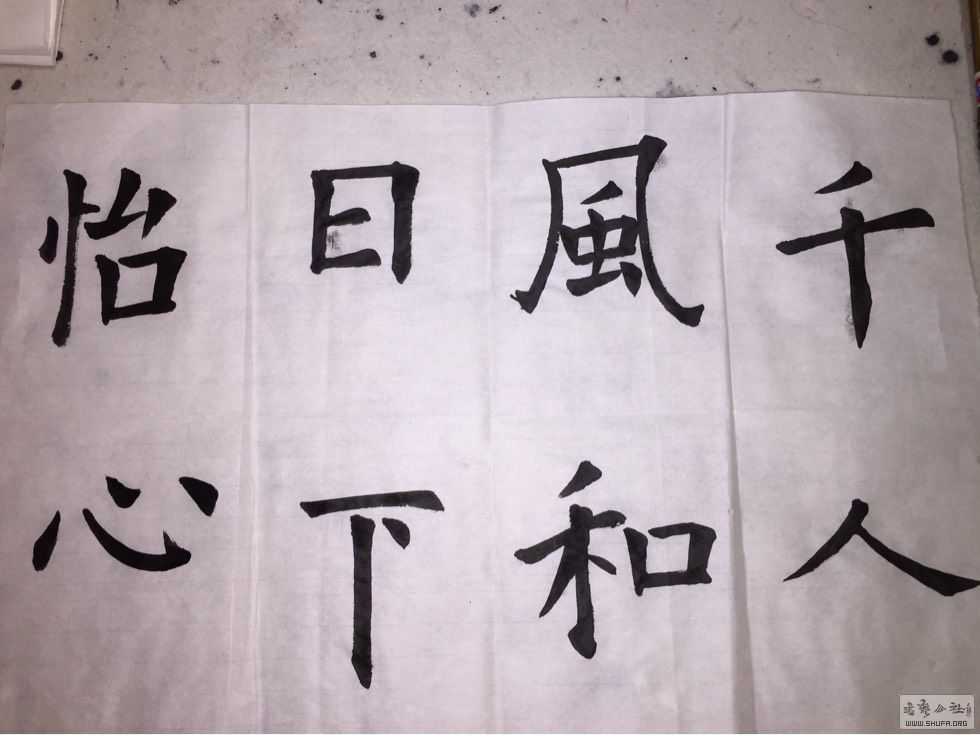 千人
風和
日下
怡心
書藝公社
WWW.SHUFA.ORG